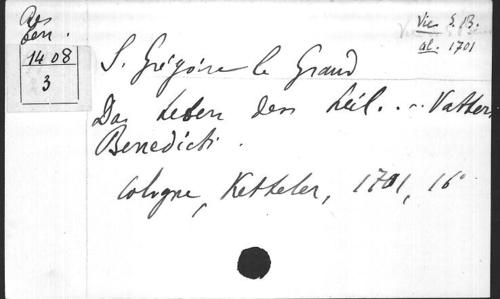 Rés
1408
3
Vie S. B.
al. 1701
S. Grégoire le Grand
Das Leben den heil. .. Vatters
Benedicti.
Cologne, Ketteler, 1701, 16°